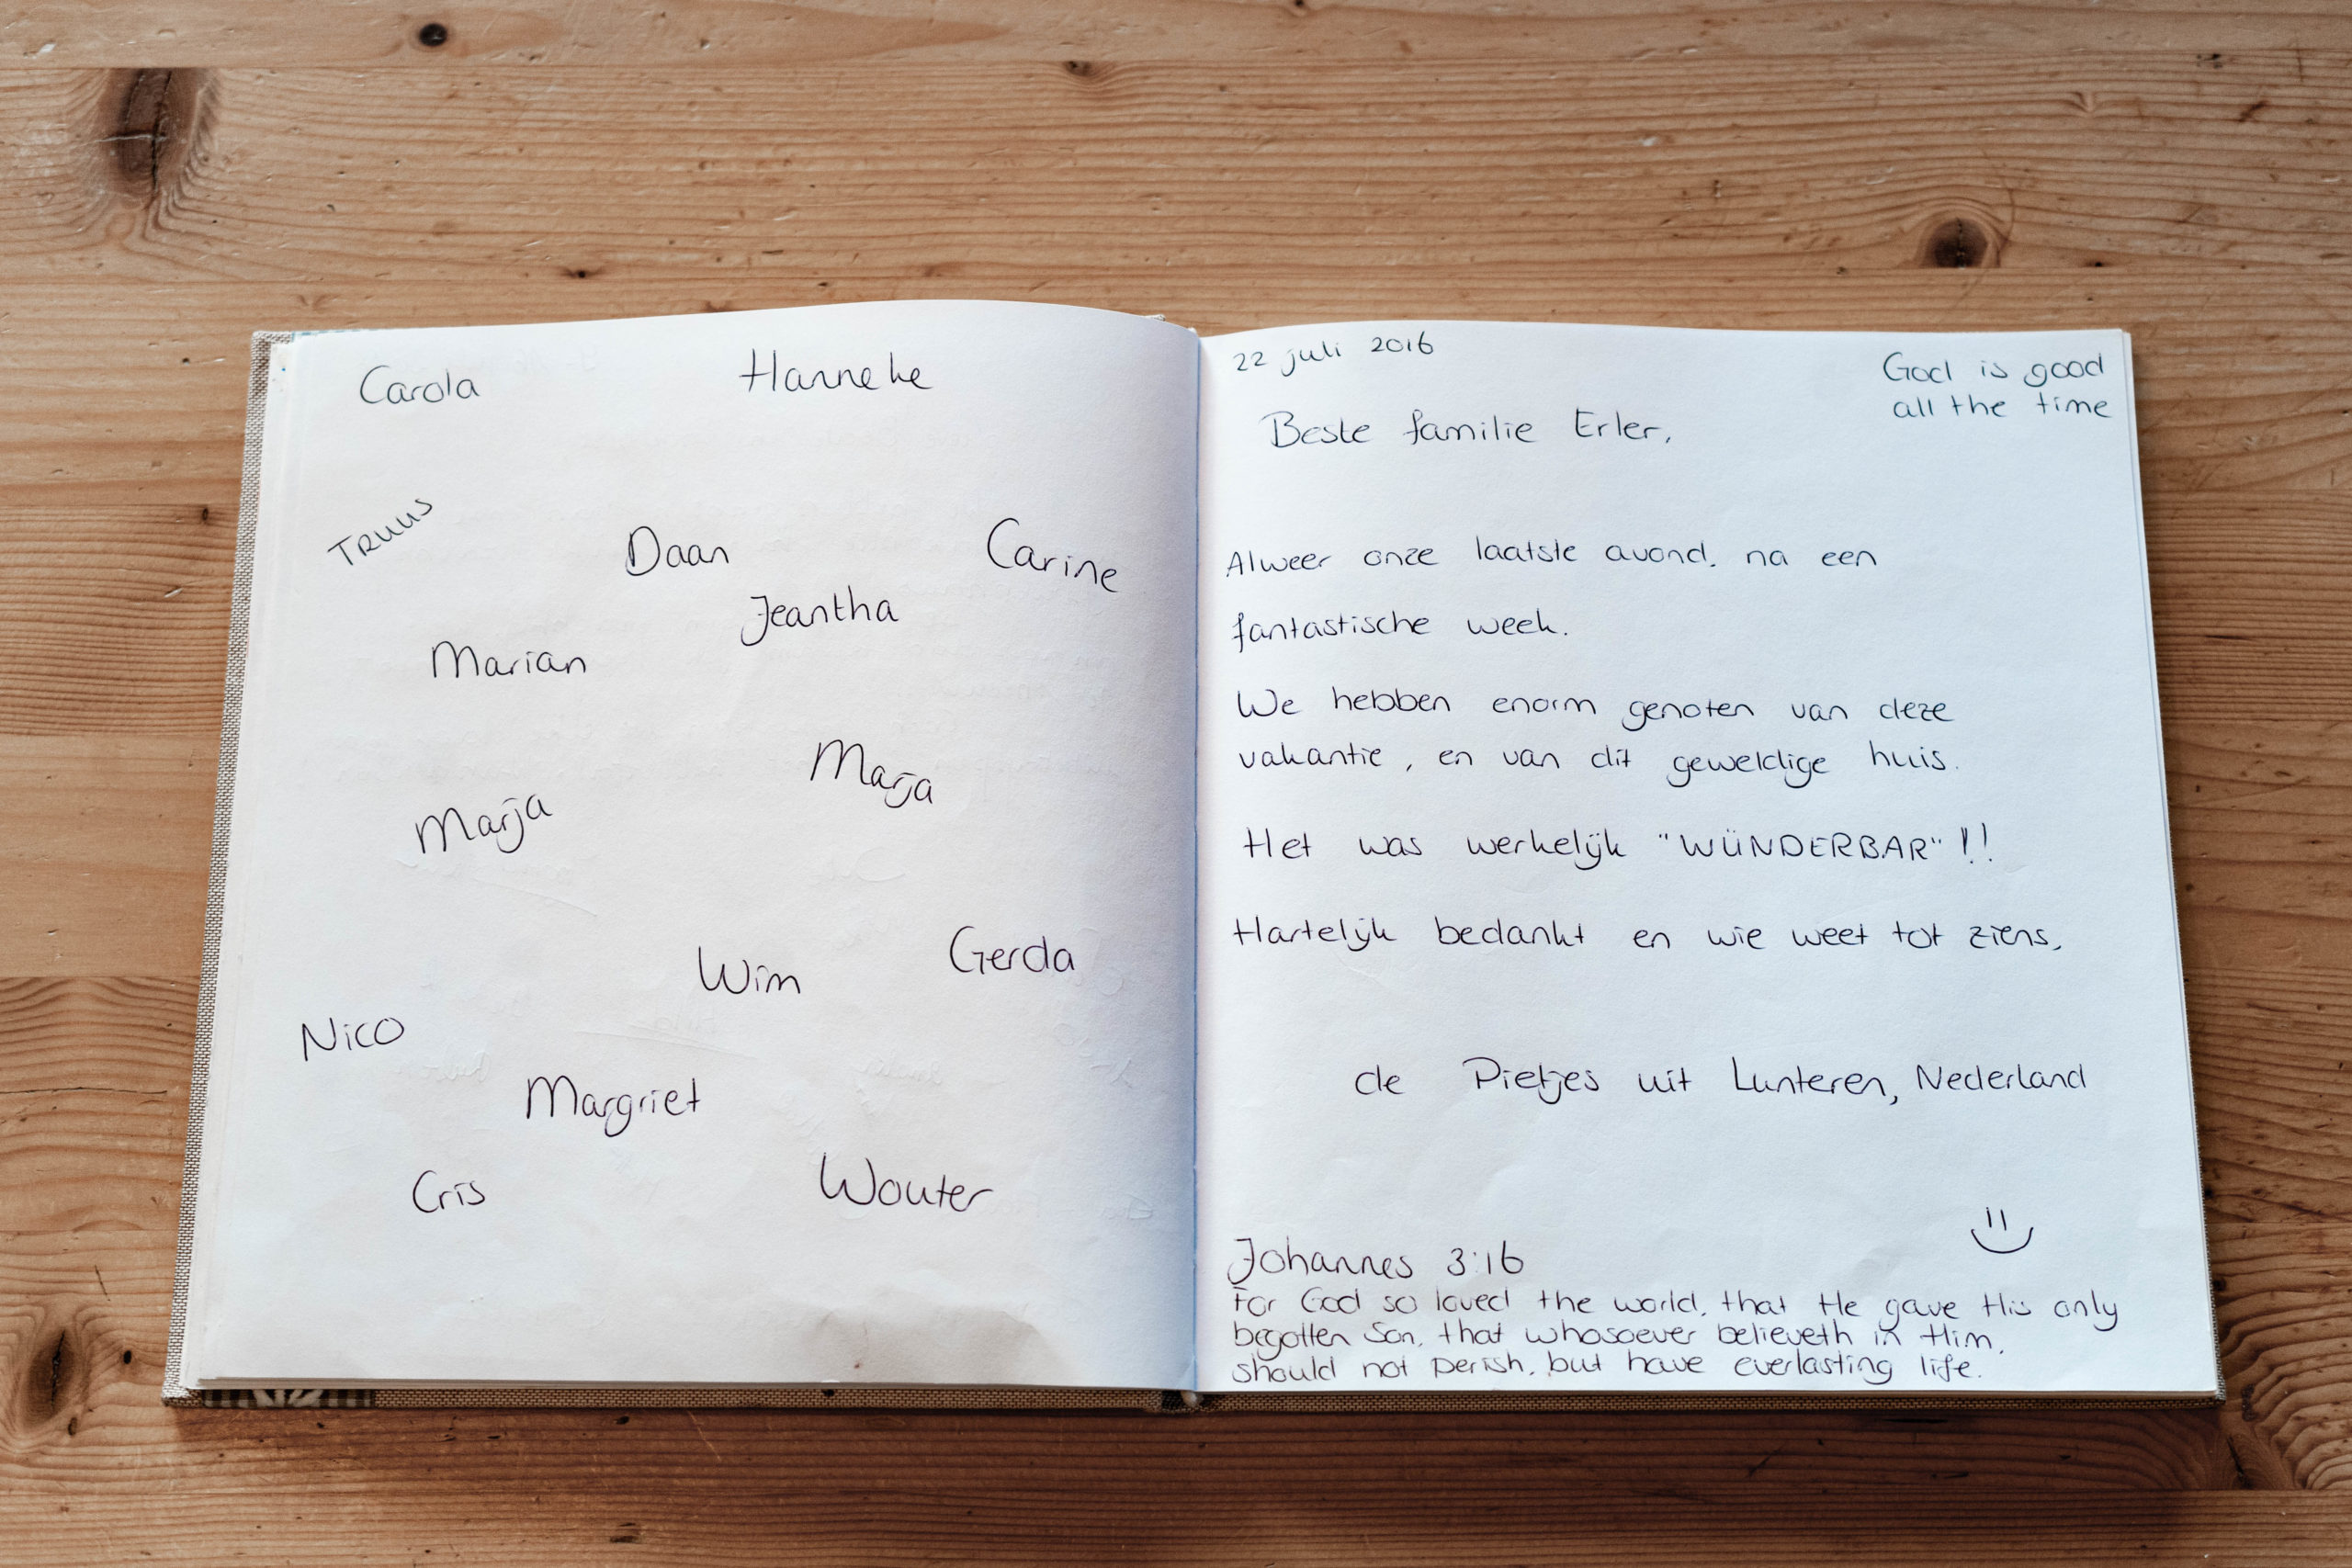 Carola
Hanneke
Truus
Daan
Carine
Jeantha
Marian
Marja
Marja
Wim
Gerda
Nico
Margriet
Cris
Wouter
22 juli 2016
God is good
all the time
Beste familie Erler,
Alweer onze laatste avond, na een
fantastische week.
We hebben enorm genoten van deze
vakantie, en van dit geweldige huis.
Het was werkelijk "WÜNDERBAR"!!
Hartelijk bedankt en wie weet tot ziens,
de Pietjes uit Lunteren, Nederland
Johannes 3:16
For God so loved the world, that He gave His only
begotten Son, that whosoever believeth in Him,
should not perish, but have everlasting life.